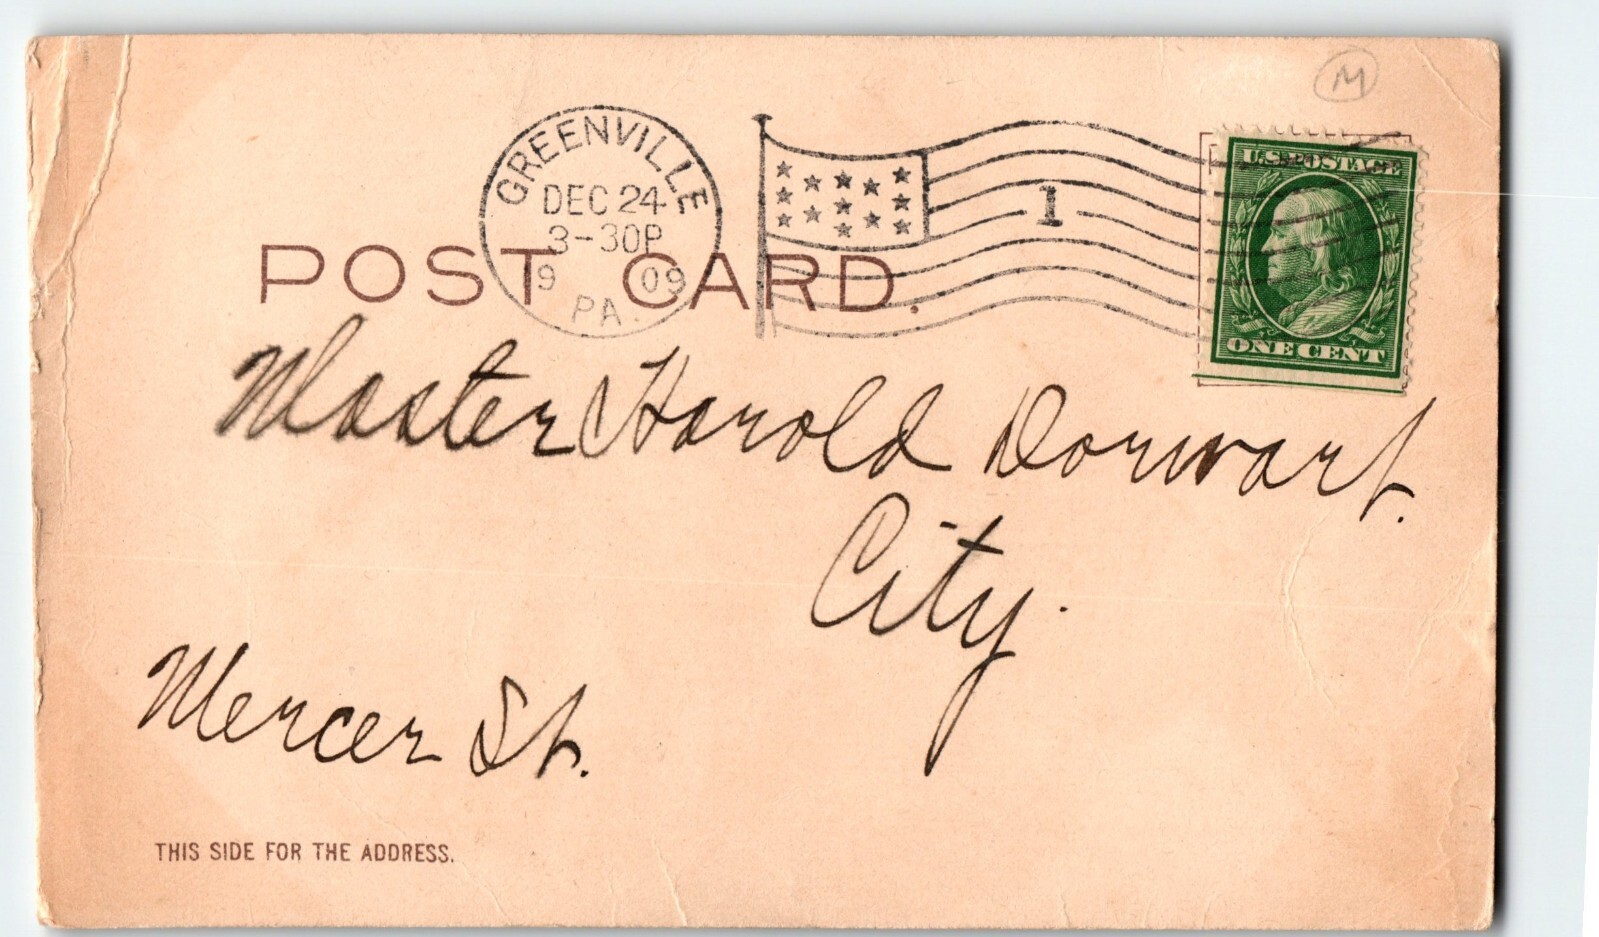 M
GREENVILLE
DEC 24
3-30P
19 09
PA.
1
U.S. POSTAGE
ONE CENT
POST CARD.
Master Harold Dorwart.
City.
Mercer St.
THIS SIDE FOR THE ADDRESS.